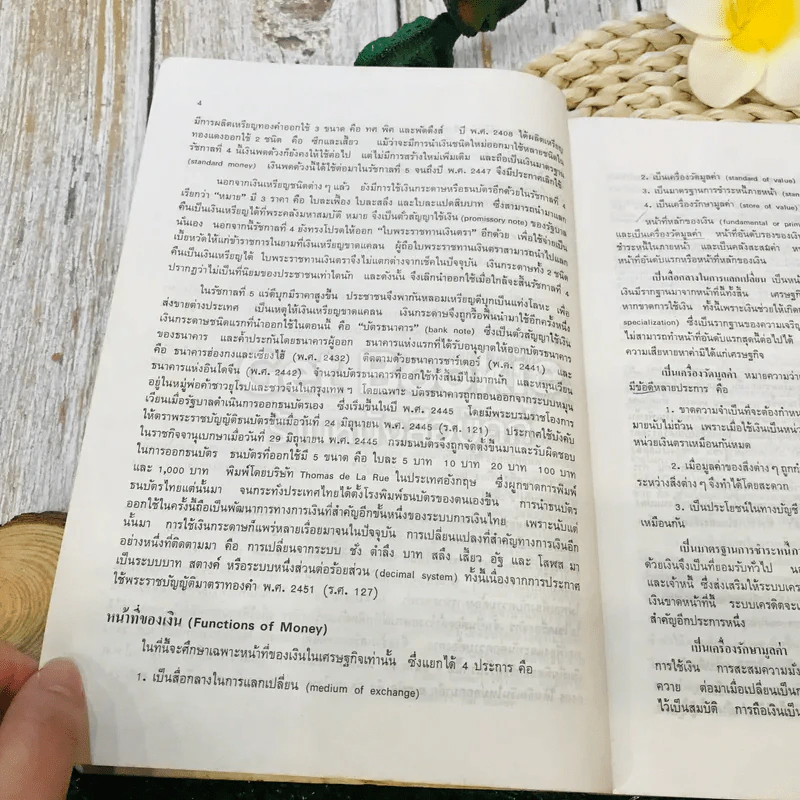 4
มีการผลิตเหรียญทองคำออกใช้ 3 ขนาด คือ ทศ พิศ และพัดดึงส์ ปี พ.ศ. 2408 ได้ผลิตเหรียญ
ทองแดงออกใช้ 2 ชนิด คือ ซีกและเสี้ยว แม้ว่าจะมีการนำเงินชนิดใหม่ออกมาใช้หลายชนิดใน
รัชกาลที่ 4 นี้เงินพดด้วงก็ยังคงให้ใช้ต่อไป แต่ไม่มีการสร้างใหม่เพิ่มเติม และถือเป็นเงินมาตรฐาน
(standard money) เงินพดด้วงนี้ได้ใช้ต่อมาในรัชกาลที่ 5 จนถึงปี พ.ศ. 2447 จึงมีประกาศเลิกใช้
นอกจากเงินเหรียญชนิดต่าง ๆ แล้ว ยังมีการใช้เงินกระดาษหรือธนบัตรอีกด้วยในรัชกาลที่ 4
เรียกว่า "หมาย" มี 3 ราคา คือ ใบละเฟื้อง ใบละสลึง และใบละแปดสิบบาท ซึ่งสามารถนำมาแลก
คืนเป็นเงินเหรียญได้ที่พระคลังมหาสมบัติ หมาย จึงเป็นตั๋วสัญญาใช้เงิน (promissory note) ของรัฐบาล
นั่นเอง นอกจากนี้รัชกาลที่ 4 ยังทรงโปรดให้ออก "ใบพระราชทานเงินตรา" อีกด้วย เพื่อใช้จ่ายเป็น
เบี้ยหวัดให้แก่ข้าราชการในยามที่เงินเหรียญขาดแคลน ผู้ถือใบพระราชทานเงินตราสามารถนำไปแลก
คืนเป็นเงินเหรียญได้ ใบพระราชทานเงินตราจึงไม่แตกต่างจากเช็คในปัจจุบัน เงินกระดาษทั้ง 2 ชนิด
ปรากฏว่าไม่เป็นที่นิยมของประชาชนเท่าใดนัก และดังนั้น จึงเลิกนำออกใช้เมื่อใกล้จะสิ้นรัชกาลที่ 4
ในรัชกาลที่ 5 แร่ดีบุกมีราคาสูงขึ้น ประชาชนจึงพากันหลอมเหรียญดีบุกเป็นแท่งโลหะ เพื่อ
ส่งขายต่างประเทศ เป็นเหตุให้เงินเหรียญขาดแคลน เงินกระดาษจึงถูกรื้อฟื้นนำมาใช้อีกครั้งหนึ่ง
เงินกระดาษชนิดแรกที่นำออกใช้ในตอนนี้ คือ "บัตรธนาคาร" (bank note) ซึ่งเป็นตั๋วสัญญาใช้เงิน
ของธนาคาร และค้ำประกันโดยธนาคารผู้ออก ธนาคารแห่งแรกที่ได้รับอนุญาตให้ออกบัตรธนาคาร
คือ ธนาคารฮ่องกงและเซี่ยงไฮ้ (พ.ศ. 2432) ติดตามด้วยธนาคารชาร์เตอร์ (พ.ศ. 2441) และ
ธนาคารแห่งอินโดจีน (พ.ศ. 2442) จำนวนบัตรธนาคารที่ออกใช้ทั้งสิ้นมีไม่มากนัก และหมุนเวียน
อยู่ในหมู่พ่อค้าชาวยุโรปและชาวจีนในกรุงเทพ ๆ โดยเฉพาะ บัตรธนาคารถูกถอนออกจากระบบหมุน
เวียนเมื่อรัฐบาลดำเนินการออกธนบัตรเอง ซึ่งเริ่มขึ้นในปี พ.ศ. 2445 โดยมีพระบรมราชโองการ
ให้ตราพระราชบัญญัติธนบัตรขึ้นเมื่อวันที่ 24 มิถุนายน พ.ศ. 2445 (ร.ศ. 121) ประกาศใช้บังคับ
ในราชกิจจานุเบกษาเมื่อวันที่ 29 มิถุนายน พ.ศ. 2445 กรมธนบัตรจึงถูกจัดตั้งขึ้นมาและรับผิดชอบ
ในการออกธนบัตร ธนบัตรที่ออกใช้มี 5 ขนาด คือ ใบละ 5 บาท 10 บาท 20 บาท 100 บาท
และ 1,000 บาท พิมพ์โดยบริษัท Thomas de La Rue ในประเทศอังกฤษ ซึ่งผูกขาดการพิมพ์
ธนบัตรไทยแต่นั้นมา จนกระทั่งประเทศไทยได้ตั้งโรงพิมพ์ธนบัตรของตนเองขึ้น การนำธนบัตร
ออกใช้ในครั้งนี้ถือเป็นพัฒนาการทางการเงินที่สำคัญอีกขั้นหนึ่งของระบบการเงินไทย เพราะนับแต่
นั้นมา การใช้เงินกระดาษก็แพร่หลายเรื่อยมาจนในปัจจุบัน การเปลี่ยนแปลงที่สำคัญทางการเงินอีก
อย่างหนึ่งที่ติดตามมา คือ การเปลี่ยนจากระบบ ชั่ง ตำลึง บาท สลึง เสี้ยว อัฐ และ โสฬส มา
เป็นระบบบาท สตางค์ หรือระบบหนึ่งส่วนต่อร้อยส่วน (decimal system) ทั้งนี้เนื่องจากการประกาศ
ใช้พระราชบัญญัติมาตราทองคำ พ.ศ. 2451 (ร.ศ. 127)
หน้าที่ของเงิน (Functions of Money)
ในที่นี้จะศึกษาเฉพาะหน้าที่ของเงินในเศรษฐกิจเท่านั้น ซึ่งแยกได้ 4 ประการ คือ
1. เป็นสื่อกลางในการแลกเปลี่ยน (medium of exchange)
2. เป็นเครื่องวัดมูลค่า (standard of value)
3. เป็นมาตรฐานการชำระหนี้ภายหน้า (stan
4. เป็นเครื่องรักษามูลค่า (store of value)
หน้าที่หลักของเงิน (fundamental or prim
และเป็นเครื่องวัดมูลค่า หน้าที่อันดับรองของเงิน
ชำระหนี้ในภายหน้า และเป็นคลังสะสมค่า
หน้าที่อันดับแรกหรือหน้าที่หลักของเงิน
เป็นสื่อกลางในการแลกเปลี่ยน เป็นหน้
เงินมีรากฐานมาจากหน้าที่นี้ทั้งสิ้น เศรษฐกิ
หากขาดการใช้เงิน ทั้งนี้เพราะเงินช่วยให้เกิด
specialization) ซึ่งเป็นรากฐานของความเจริญ
ไม่สามารถทำหน้าที่อันดับแรกสุดนี้ต่อไปได้
ความเสียหายหาค่ามิได้แก่เศรษฐกิจ
เป็นเครื่องวัดมูลค่า หมายความว่า
มีข้อดีหลายประการ คือ
1. ขาดความจำเป็นที่จะต้องกำห
มายนับไม่ถ้วน เพราะเมื่อใช้เงินเป็นหน่ว
หน่วยเงินตราเหมือนกันหมด
2. เมื่อมูลค่าของสิ่งต่าง ๆ ถูกก
ระหว่างสิ่งต่าง ๆ จึงทำได้โดยสะดวก
3. เป็นประโยชน์ในทางบัญชี
เหมือนกัน
เป็นมาตรฐานการชำระหนี้ภา
ด้วยเงินจึงเป็นที่ยอมรับทั่วไป
และเจ้าหนี้ ซึ่งส่งเสริมให้ระบบเคร
เงินขาดหน้าที่นี้ ระบบเครดิตจะเ
สำคัญอีกประการหนึ่ง
เป็นเครื่องรักษามูลค่า
การใช้เงิน การสะสมความมั่ง
ควาย ต่อมาเมื่อเปลี่ยนเป็นก
ไว้เป็นสมบัติ การถือเงินเป็น